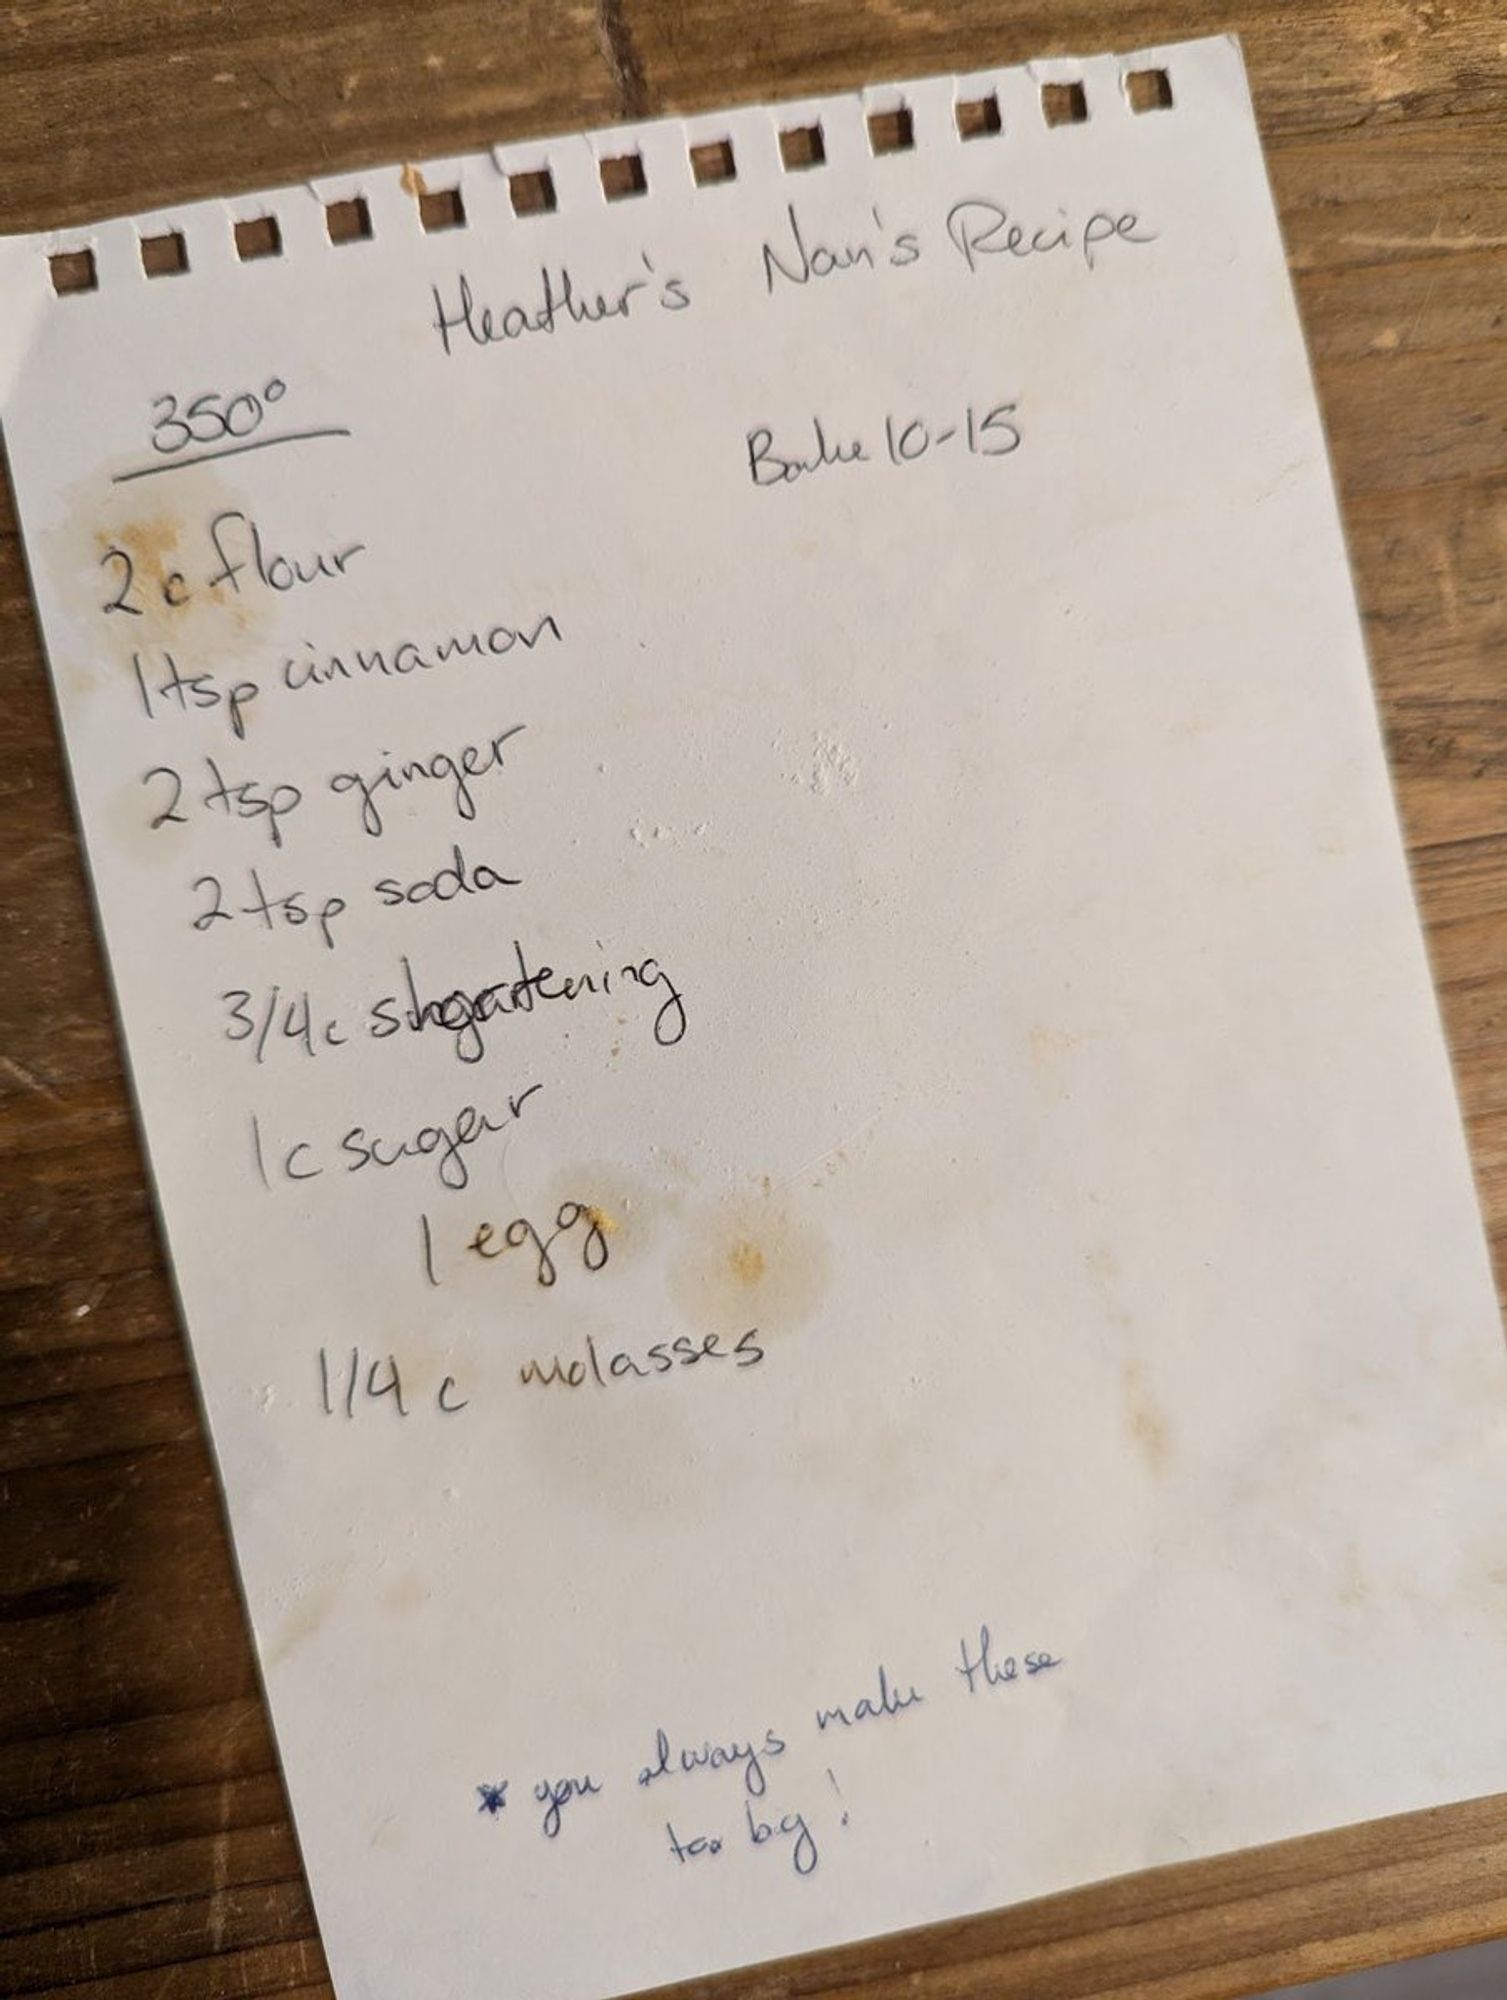 Heather's Nan's Recipe
350°
Bake 10-15
2 c flour
1 tsp cinnamon
2 tsp ginger
2 tsp soda
3/4 c shortening
1 c sugar
1 egg
1/4 c molasses
* you always make these
too big!